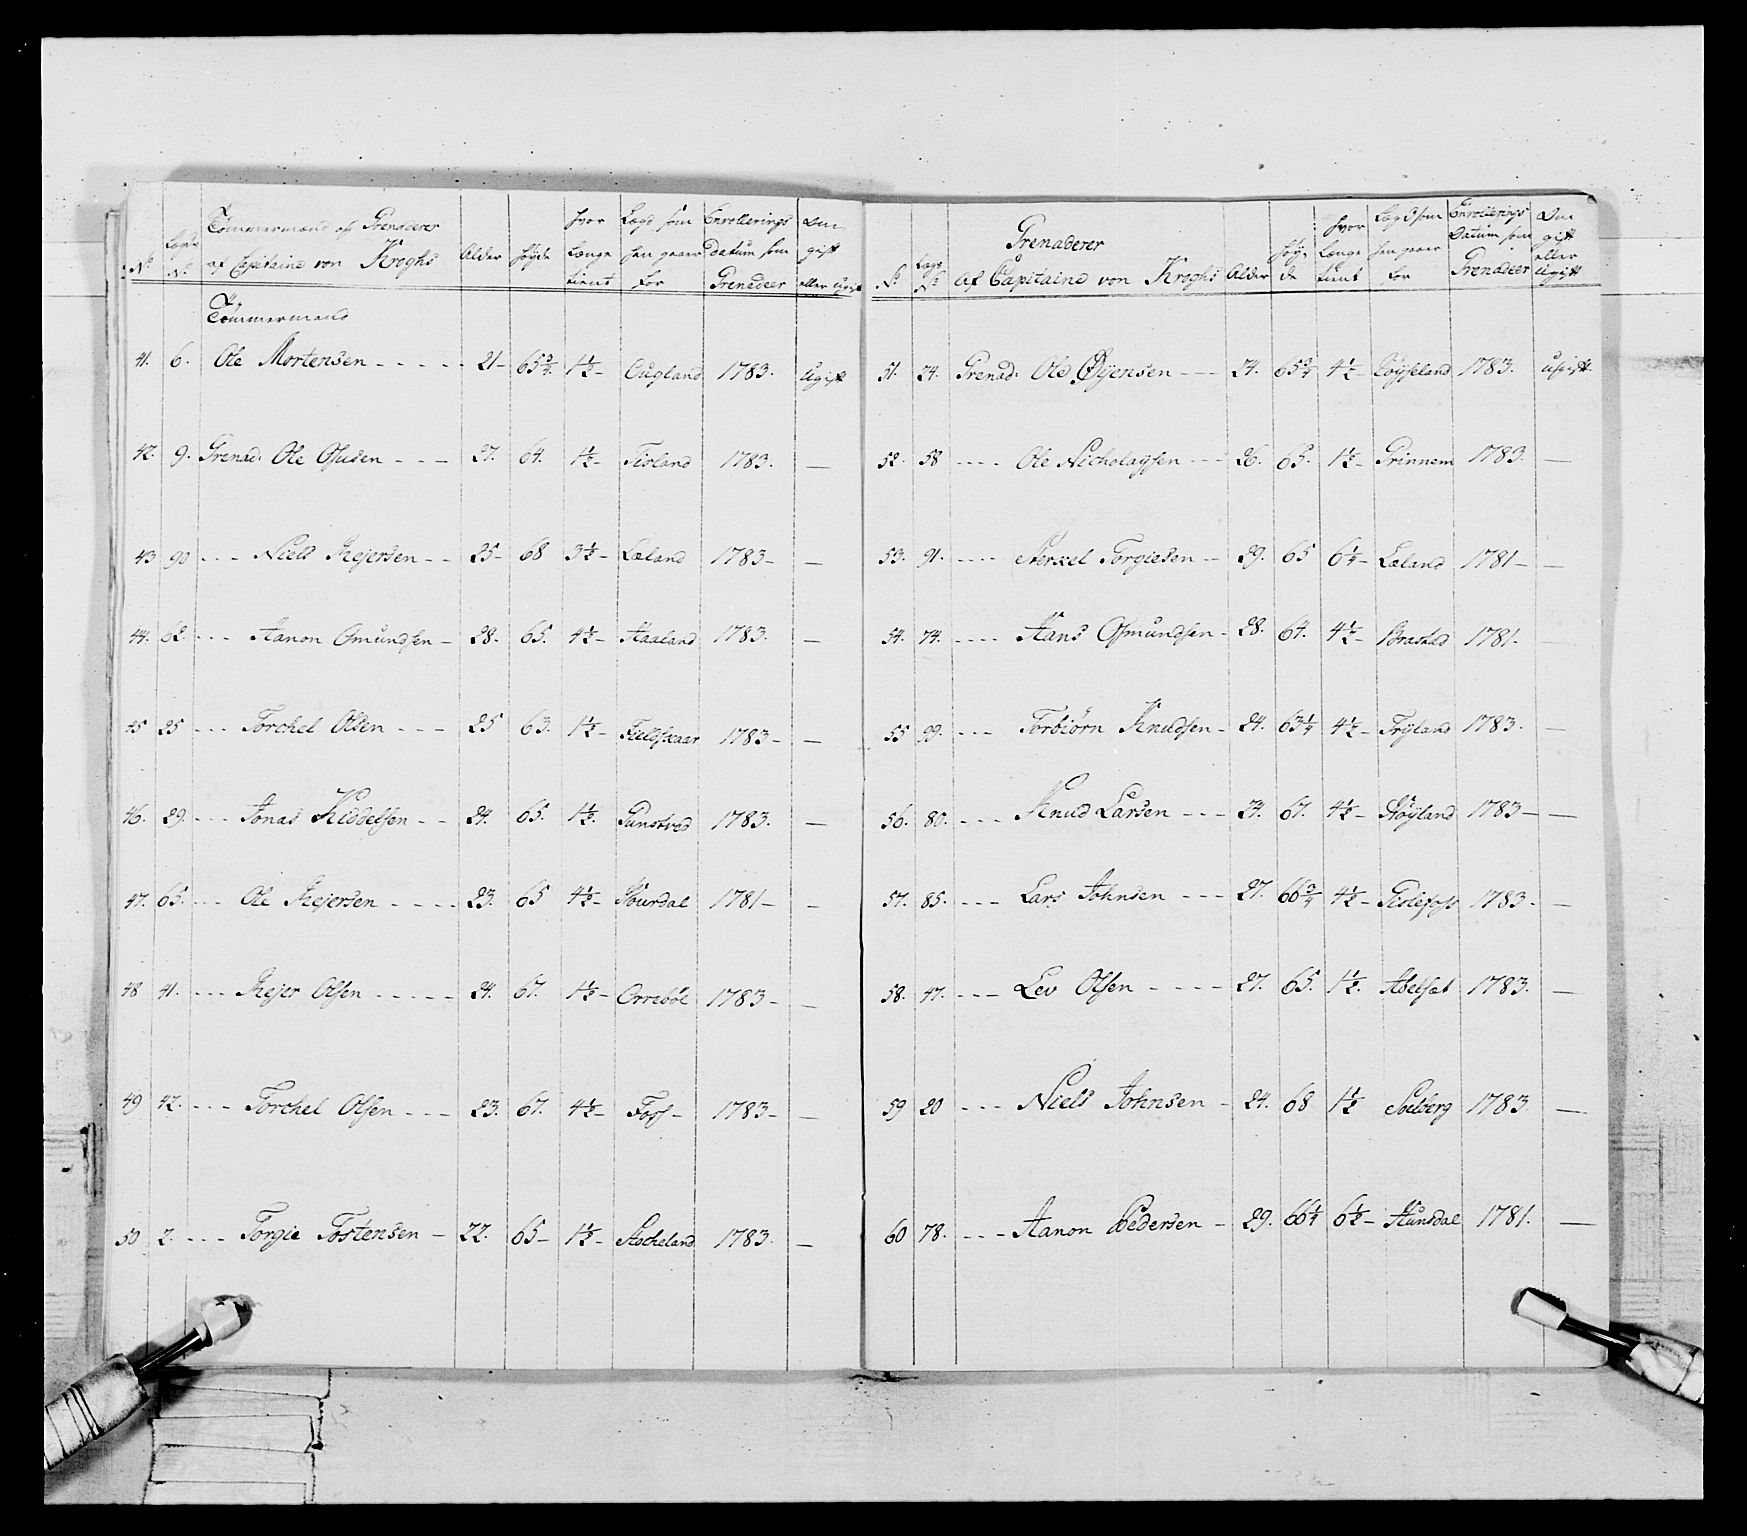 No. Lægs No. Tømmermænd og Grenaderer af Capitaine von Kroghs Alder Høyde hvor Længe tient Lægd som han gaaer for Enrollerings Datum som Grenadeer Om gift eller ugift
Tømmermænd
41. 6. Ole Mortensen - - - - - 21- 65 3/4. 1 1/2- Ougland 1783. Ugift
42. 9. Grenad: Ole Osusen - - - 27. 64. 1 1/2- Tisland 1783. —
43 90 - - - Niels Rejersen - - 25- 68 3 1/2- Laland 1783- —
44. 62. - - - Aanon Omundsen - 28. 65. 4 1/2- Haaland 1783. —
45 25 - - - Torchel Olsen - - - 25 63. 1 1/2- 1783- —
46. 29. - - - Jonas Kiddelsen - - 24. 65. 1 1/2. 1783. —
47. 65. - - - Ole Rejersen - - - - 23. 65 4 1/2- 1781- -
48 41. - - - Rejer Olsen - - - - - 24. 67. 1 1/2- Orreböe 1783- —
49 42. - - - Torchel Olsen - - - 23. 67. 4 1/2- Foss- 1783- —
50 2. - - - Torgie Tostensen - 22. 65- 1 1/2- Stocheland 1783. —
No. Lægs No. Grenaderer af Capitaine von Kroghs Alder Høyde hvor Længe tient Lægd som han gaaer for Enrollerings Datum som Grenadeer Om gift eller ugift
51. 24. Grenad: Ole Øijensen - - - 24. 65 3/4 4 1/2- 1783. ugift.
52. 58 - - - - Ole Nicholaysen - - - 26. 65. 1 1/2- Grinnem 1783. —
53. 91. - - - - Torgiesen - - 29. 65 6 1/4- Laland 1781- —
54. 74. - - - - Hans Osmundsen - 28. 64. 4 1/2- Brastad 1781. —
55 99. - - - Torbiörn Knudsen - 24. 63 1/4 4 1/2- Tryland 1783. —
56. 80. - - - Knud Larsen - - - 24. 67. 4 1/2- Höyland 1783- —
57. 85. - - - Lars Johnsen - - - 27. 66 3/4 4 1/2- Gislefoss 1783- —
58. 47. - - - Lev Olsen - - - - 27. 65. 1 1/2. Abelsæt 1783. —
59 20 - - - Niels Johnsen - 24. 68 1 1/2 Solberg 1783. —
60 78. - - - Aanon Pedersen - 29. 66 1/4 6 1/2- Hunsdal 1781. —